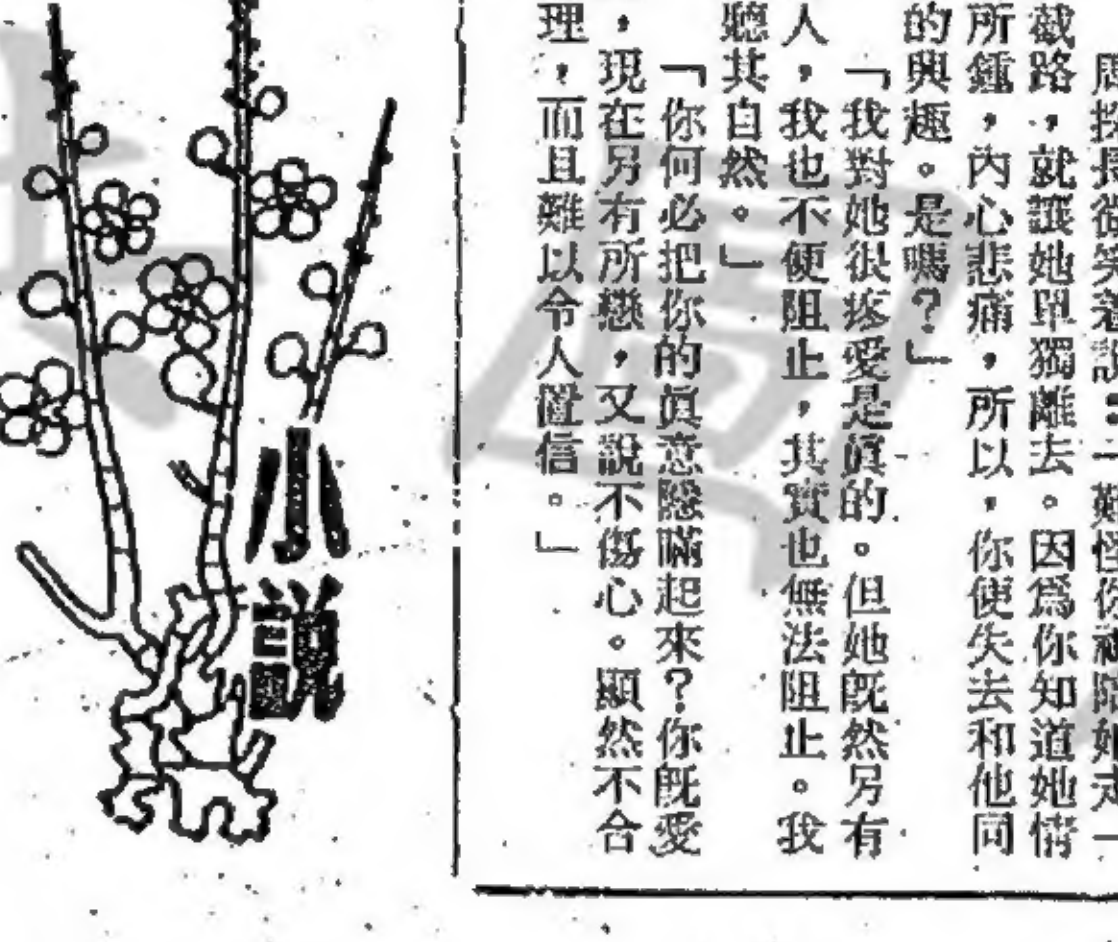 周探長微笑着說：「難怪你祇陪她走一
截路，就讓她單獨離去。因爲你知道她情
所鍾，內心悲痛，所以，你便失去和他同
的興趣。是嗎？」
「我對她很疼愛是眞的。但她旣然另有
人，我也不便阻止，其實也無法阻止。我
聽其自然。」
「你何必把你的眞意隱瞞起來？你旣愛
，現在另有所戀，又說不傷心。顯然不合
理，而且難以令人置信。」
小說